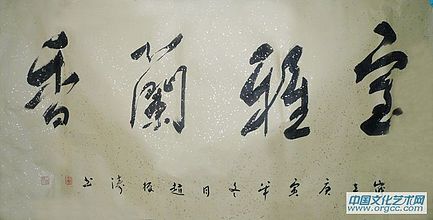 室雅蘭香
歲在庚寅年冬月趙振濤书
中国文化艺术网
www.orgcc.com